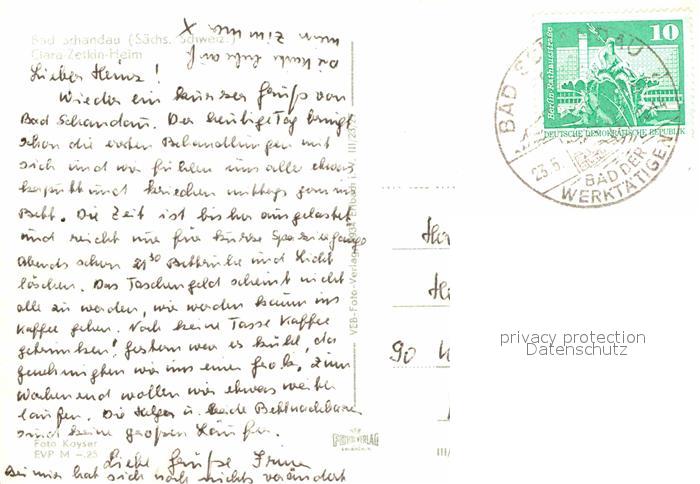 Bad Schandau (Sächs. Schweiz)
Clara-Zetkin-Heim
X mein Zimmer
Lieber Heinz!
Wieder ein kurzer Gruß von
Bad Schandau. Der heutige Tag bringt
schon die ersten Behandlungen mit
sich und wir fühlen uns alle etwas
kaputt und kriechen mittags gern ins
Bett. Die Zeit ist bisher ausgelastet
und reicht nur für kurze Spaziergänge
Abends schon 21³⁰ Bettruhe und Licht
löschen. Das Taschengeld scheint nicht
alle zu werden, wir werden kaum ins
Kaffee gehen. Noch keine Tasse Kaffee
getrunken! Gestern war es kühl, da
genehmigten wir uns einen Grog. Zum
Wochenend wollen wir etwas weiter
laufen. Die Helga u. beide Bettnachbarn
sind keine großen Läufer.
Liebe Grüße
Bei mir hat sich noch nichts verändert
Foto Kayser
EVP M -.25
VEB-Foto-Verlag
III/
90
10
Berlin Rathausstraße
DEUTSCHE DEMOKRATISCHE REPUBLIK
BAD SCHANDAU
23.5.
BAD DER
WERKTÄTIGEN
privacy protection
Datenschutz